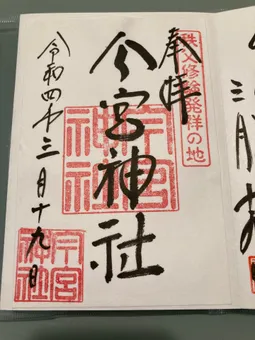 奉拝
秩父修験発祥の地
今宮神社
今宮神社
令和四年三月十九日
今宮神社